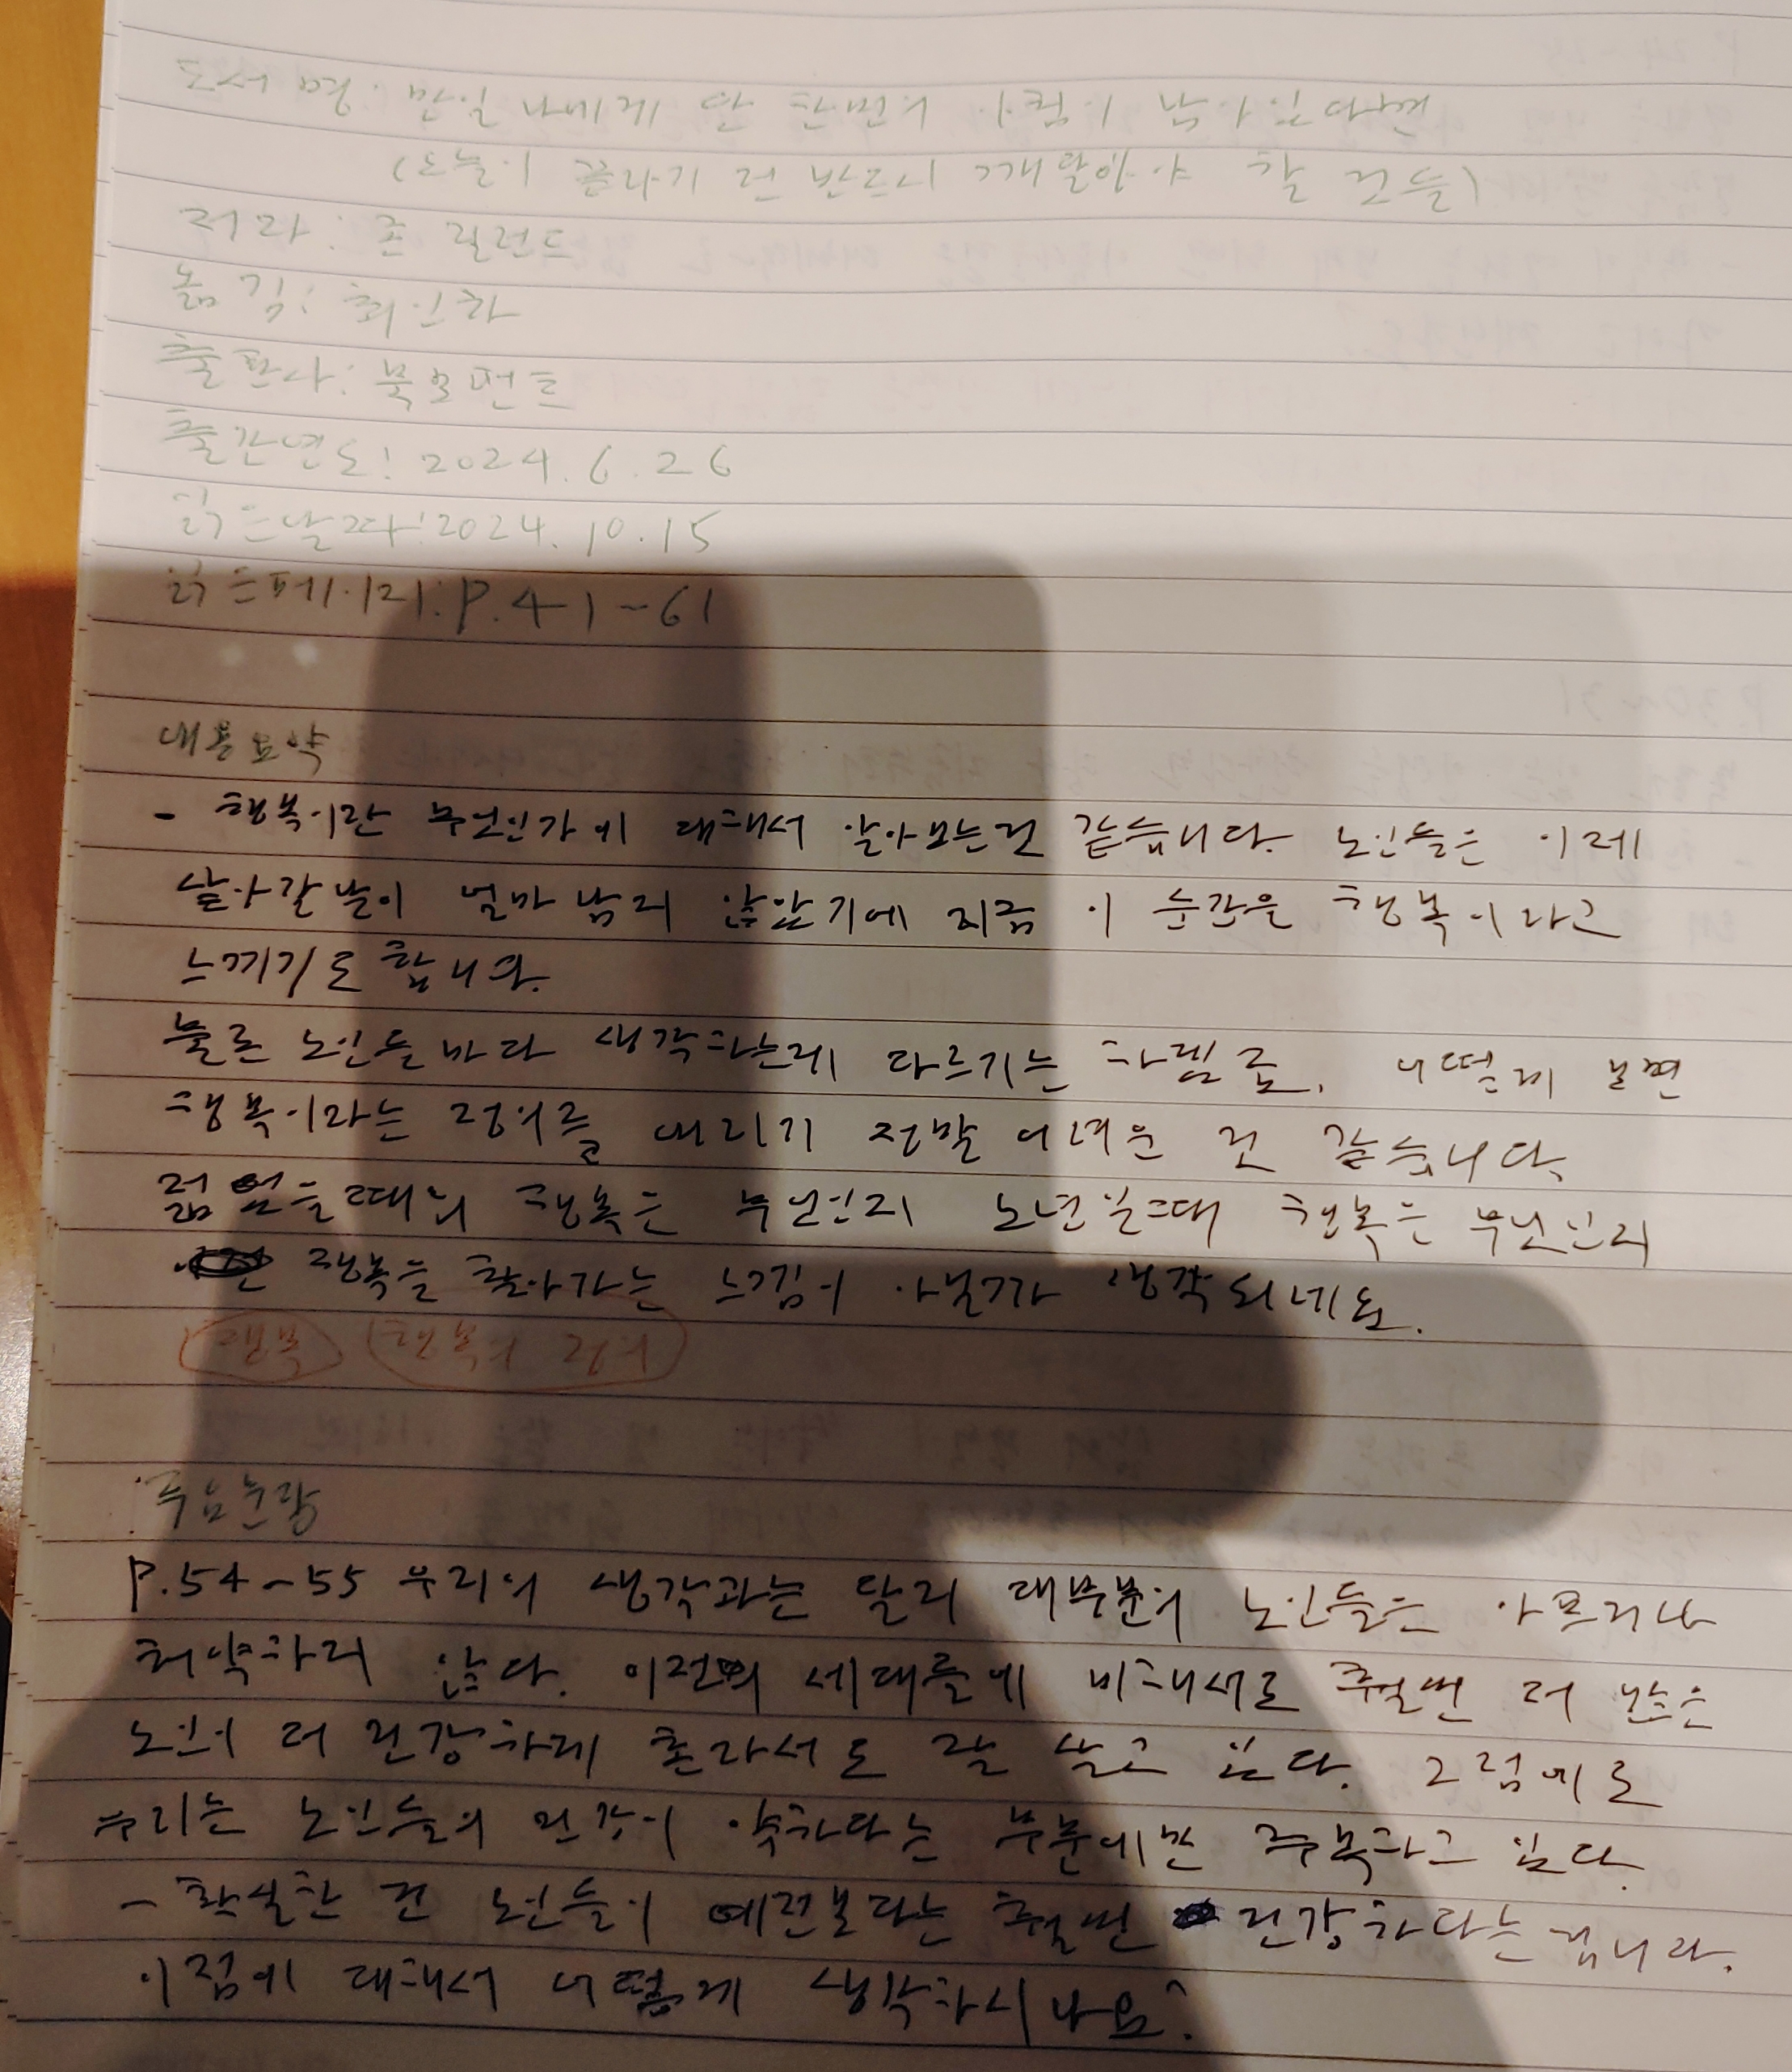 도서명: 만일 나에게 단 한번의 아침이 남아있다면
(오늘이 끝나기 전 반드시 깨달아야 할 것들)
저자: 존 릴런드
옮김: 최인하
출판사: 북모먼트
출간연도: 2024.6.26
읽은날짜: 2024.10.15
읽은페이지: P.41~61
내용요약
- 행복이란 무엇인가에 대해서 알아보는것 같습니다. 노인들은 이제
살아갈 날이 얼마 남지 않았기에 지금 이 순간을 행복이라고
느끼기도 합니다.
물론 노인들마다 생각하는게 다르기는 하겠죠. 어떻게 보면
행복이라는 정의를 내리기 정말 어려운 것 같습니다.
젊었을때의 행복은 무엇인지 노년일때 행복은 무엇인지
행복을 찾아가는 느낌이 아닐까 생각되네요.
행복 행복의 정의
주요문장
P.54-55 우리의 생각과는 달리 대부분의 노인들은 아프거나
허약하지 않다. 이전의 세대들에 비해서도 훨씬 더 많은
노인이 더 건강하게 혼자서도 잘 살고 있다. 그럼에도
우리는 노인들의 건강이 약하다는 부분에만 주목하고 있다.
- 확실한 건 노인들이 예전보다는 훨씬 건강하다는 겁니다.
이점에 대해서 어떻게 생각하시나요?